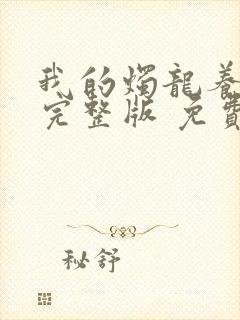 我的燭龍養
完整版 免費
秘舒